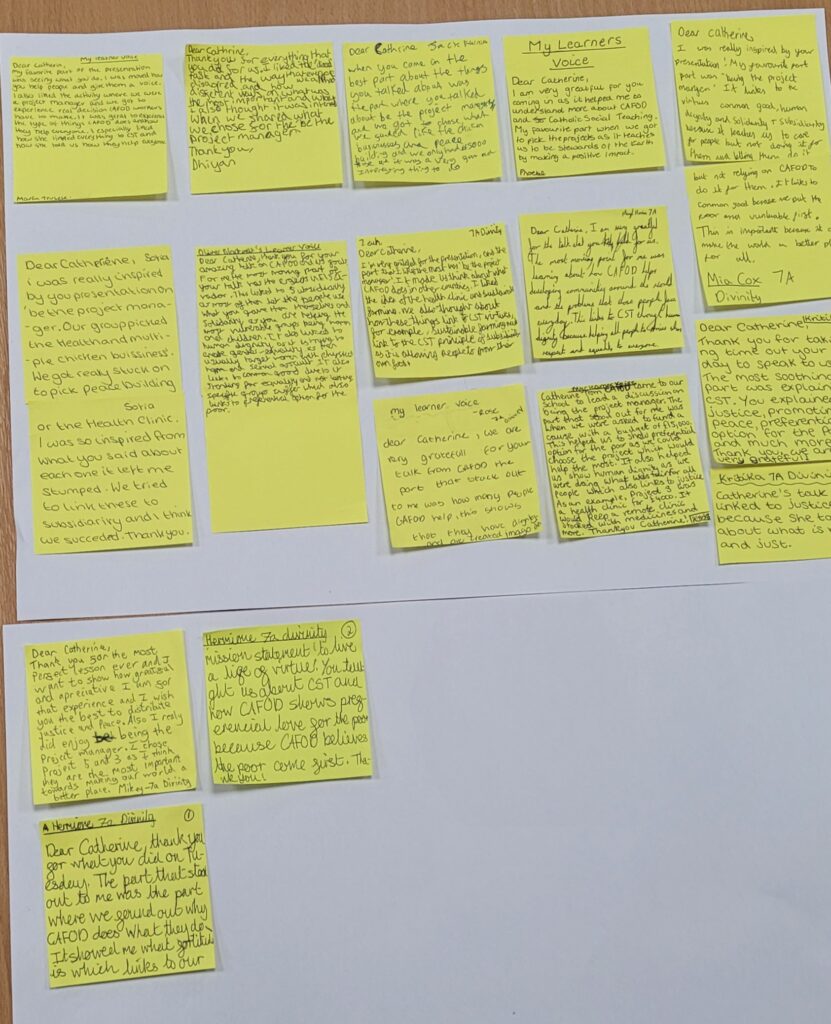 My learner voice
Dear Catherine,
My favourite part of the presentation
was seeing what you do. I was moved how
you help people and give them a voice.
I also liked the activity where we were
a project manager and we got to
experience real decision CAFOD workers
have to make. It was great to
the type of things CAFOD does and how
they help everyone. I especially liked
how she linked everything to CST and
how she told us how they help everyone
Dear Cathrine,
Thank you for everything that
you did for us. I liked the
and the way that
and how we
what was
the most important and what
I also thought it was
when we shared what
we chose for the be the
project manager.
Thank you,
Dhiyan
Dear Cathrine
when you came in the
best part about the things
you talked about was
the part where you talked
about be the project manager
and we got to chose what
we wanted like the chicken
businesses and peace
building and we only had
it was a very fun and
interesting thing to do
My Learners
Voice
Dear Catherine,
I am very greatful for you
coming in as it helped me to
understand more about CAFOD
and Catholic Social Teaching.
My favourite part when we got
to pick the projects as it teaches
us to be stewards of the Earth
by making a positive impact.
Phoebe
Dear Catherine,
I was really inspired by your
presentation! My favourite part
part was "being the project
manager". It links to the
virtues common good, human
dignity and solidarity & subsidiarity
because it teaches us to care
for people but not doing it for
them and letting them do it
but not relying on CAFOD to
do it for them. It links to
common good because we put the
poor and vunluable first.
This is important because it
make the world a better place
for all.
Mia Cox 7A
Divinity
Dear Catherine, Sofia
i was really inspired
by you presentation on
be the project mana-
ger. Our group picked
the Health and multi-
ple chicken buissiness.
We got really stuck on
to pick peace building
Sofia
or the Health Clinic.
I was so inspired from
what you said about
each one it left me
stumped. We tried
to link these to
subsidiarity and i think
we succeded. Thank you.
Learner Voice
Dear Catherine, thank you for your
amazing talk on CAFOD and its goals
For me the most moving part of
your talk was the
This linked to Subsidiarity
as most of them let the people use
what you gave them themselves and
Solidarity as you are helping the
most vulnerable groups being women
and children. It also linked to
human dignity as it is trying to
create gender equality as men
usually target women with physical
harm and sexual assault. It also
links to common good due to it
striking for equality and not letting
specific groups suffer which also
links to preferential option for the
poor.
7A Divinity
Dear Catherine,
I'm very grateful for the presentation, and the
part that I liked the most was be the project
manager. It made us think about what
CAFOD does in other countries. I liked
the idea of the health clinic and sustainable
farming. We also thought about
how these things link to CST virtues,
for example, sustainable farming could
link to the CST principle of subsidiarity
as it is allowing people to grow their
own food
7A
Dear Catherine, I am very grateful
for the talk that you
The most moving part for me was
learning about how CAFOD helps
developing community around the world
and the problems that those people face
everyday. This links to CST through human
dignity because helping all people
respect and equality to everyone.
my learner voice
dear Catherine, we are
very gratefull for your
talk from CAFOD the
part that stuck out
to me was how many people
CAFOD help, this shows
that they have dignity
and are treated imago
Catherine from CAFOD came to our
school to lead a discussion on
being the project manager. The
part that stood out for me was
when we were asked to fund a
cause with a budget of £15,000.
This helped us to show preferential
option for the poor as we could
choose the project which would
help the most. It also helped
us show human dignity as we
were doing what was fair for all
people which also links to justice
As an example, project 3 was
a health clinic for £4000. It
would keep a remote clinic
stocked with medicines and
more. Thankyou Catherine!
Dear Catherine, Kritika
Thank you for tak
ng time out your
day to speak to us
The most soothing
part was explain
CST. You explained
justice, promoting
peace, preferential
option for the p
and much more
Thank you, we are
very grateful!
Kritika 7A Divinity
Catherine's talk
linked to justice
because she ta
about what is
and just.
Dear Catherine,
Thank you for the most
perfect lesson ever and I
want to show how grateful
and apreciative I am for
that experience and I wish
you the best to distribute
justice and peace. Also I really
did enjoy being the
Project manager. I chose
Project 5 and 3 as I think
they are the most important
towards making our world a
better place. Mikey-7a Divinity
Hermione 7a divinity 2
mission statement to live
a life of virtue. You tau
ght us about CST and
how CAFOD shows pref-
erencial love for the poor
because CAFOD believes
the poor come first. Tha-
nk you!
Hermione 7a Divinity 1
Dear Catherine, thank you
for what you did on Tu-
esday. The part that stood
out to me was the part
where we found out why
CAFOD does what they do.
It showed me what
is which links to our